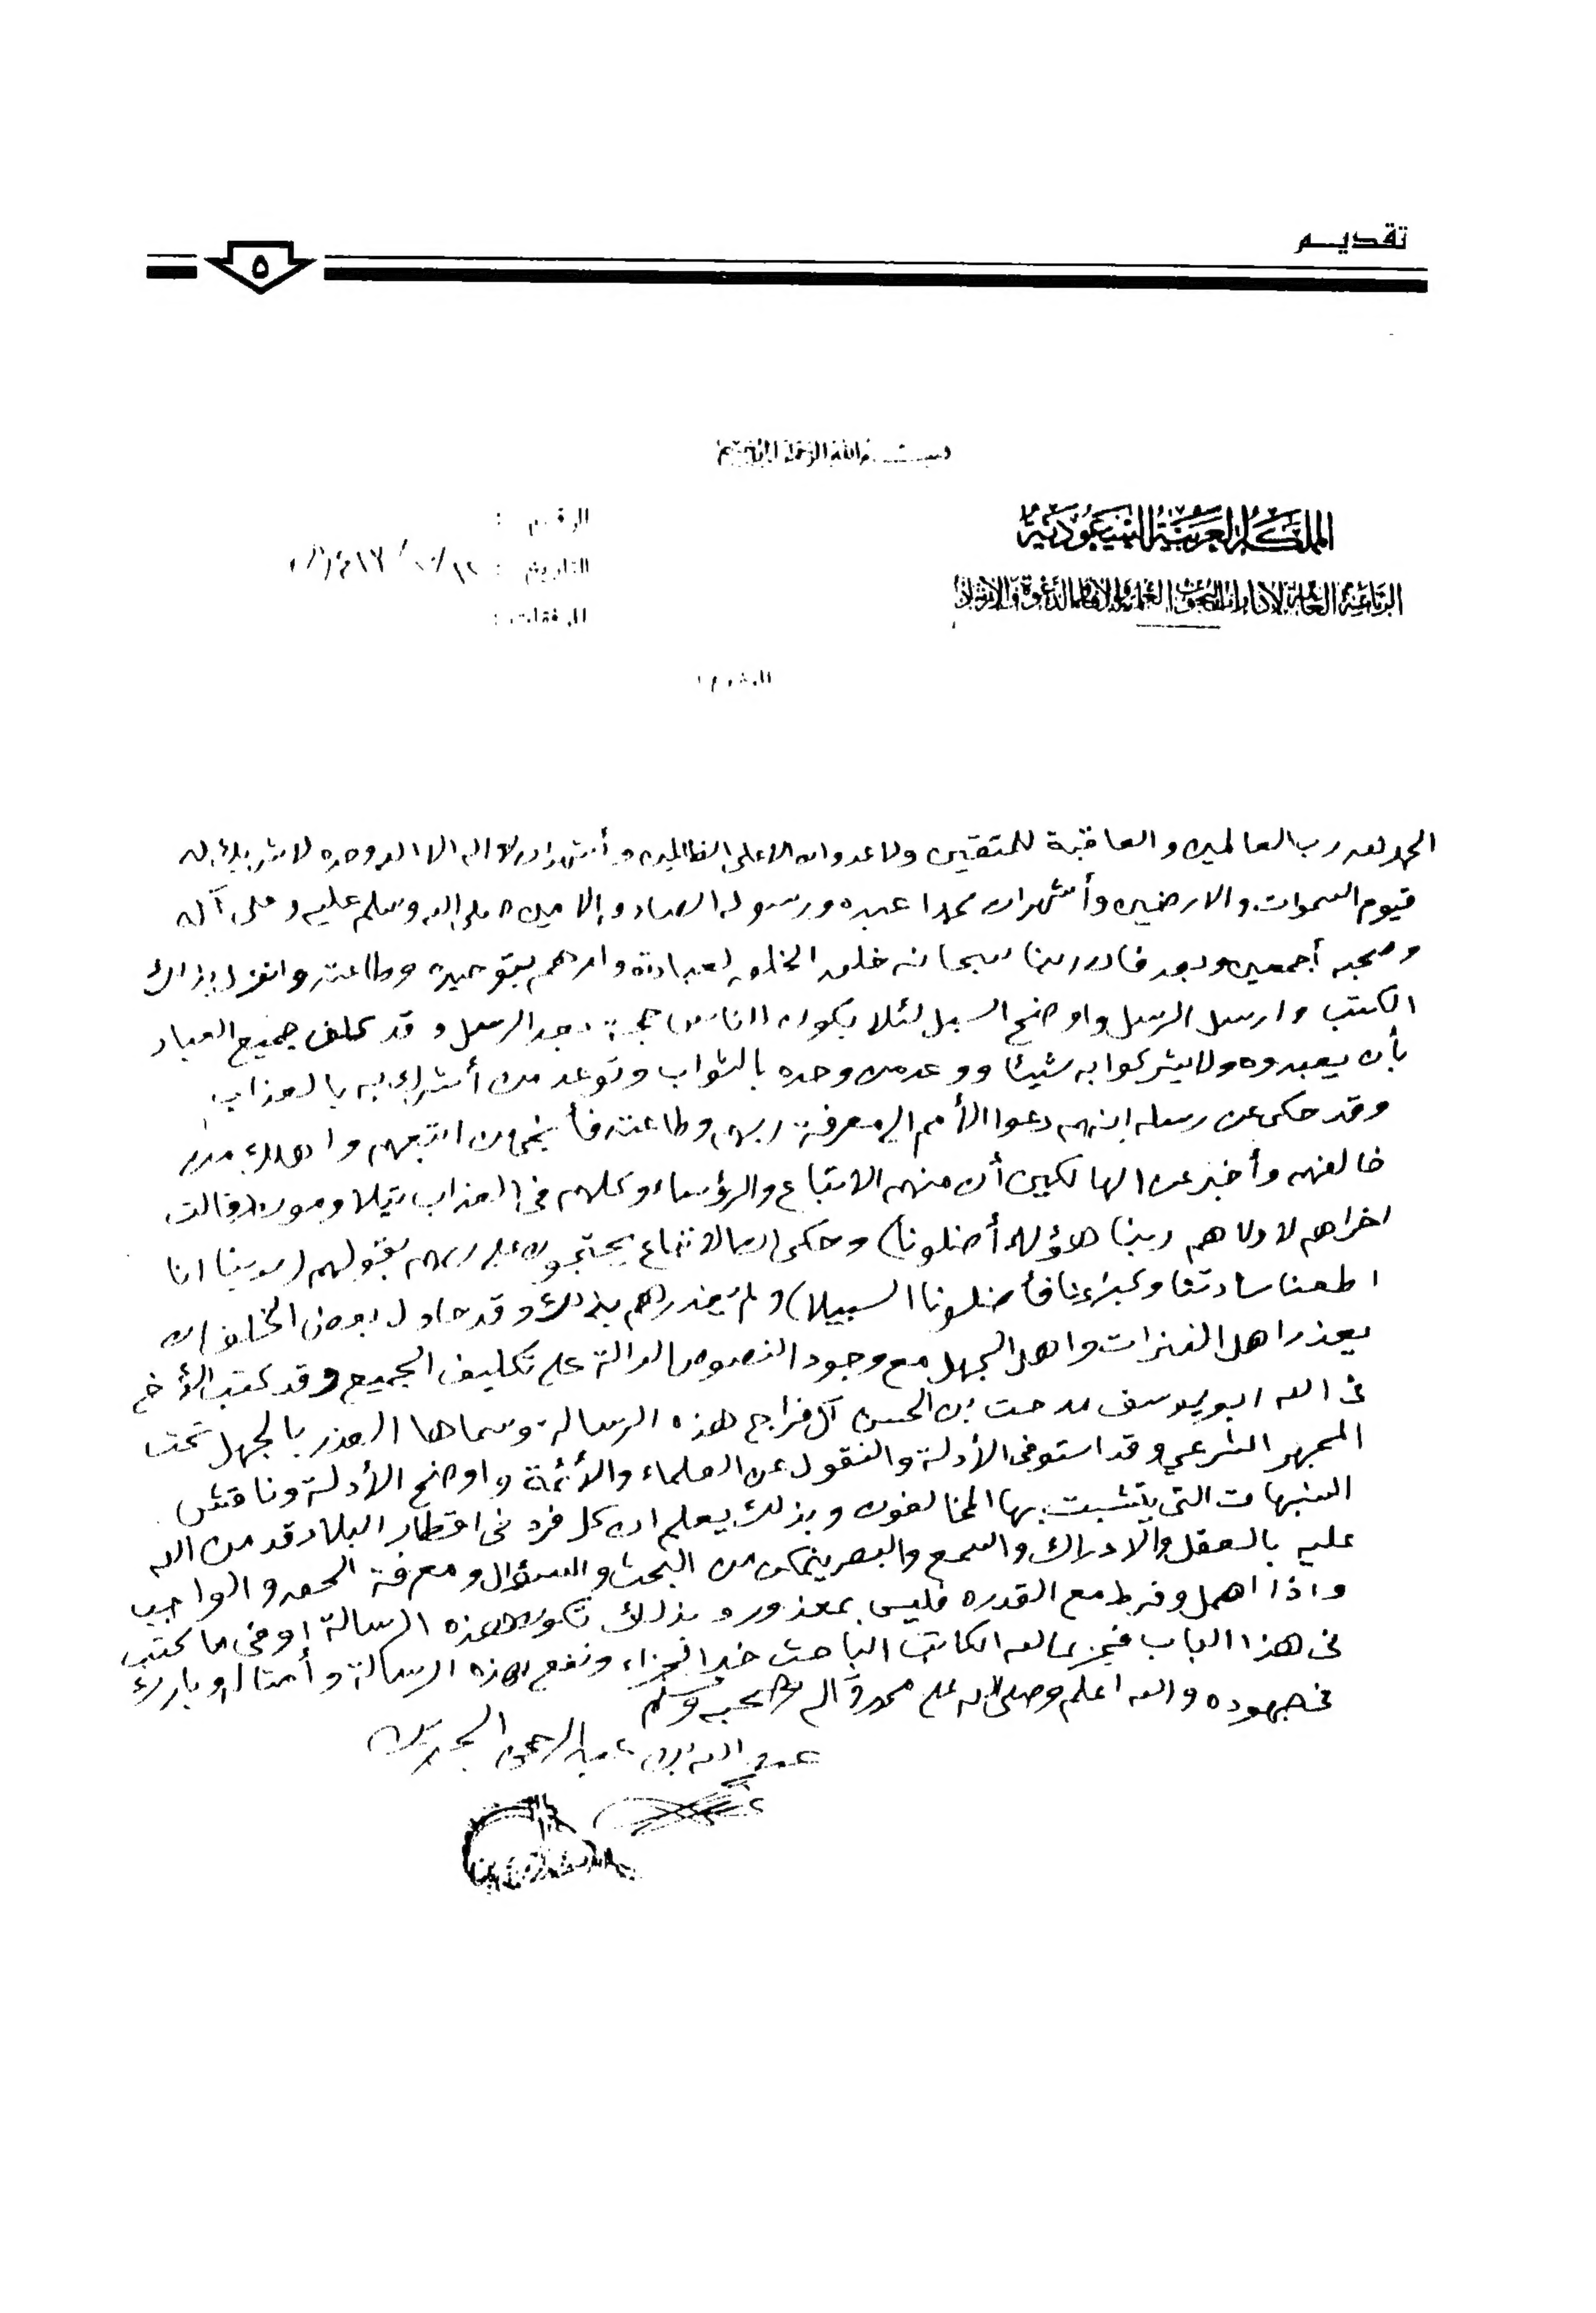 تقديم
٥
بسم الله الرحمن الرحيم
المملكة العربية السعودية
الرئاسة العامة لإدارات البحوث العلمية والإفتاء والدعوة والإرشاد
الرقم :
التاريخ :
المرفقات :
الحمد لله رب العالمين والعاقبة للمتقين ولا عدوان الا على الظالمين وأشهد ان لا اله الا الله وحده لا شريك له
قيوم السموات والارضين وأشهد ان محمدا عبده ورسوله الصادق الامين صلى الله وسلم عليه وعلى آله
وصحبه أجمعين وبعد فان ربنا سبحانه خلق الخلق لعبادته وامرهم بتوحيده وطاعته وانزل بذلك
الكتب وارسل الرسل واوضح السبل لئلا يكون للناس حجة بعد الرسل وقد كلف جميع العباد
بأن يعبدوه ولا يشركوا به شيئا ووعد من وحده بالثواب وتوعد من أشرك به بالعذاب
وقد حكى عن رسله انهم دعوا الأمم الى معرفة ربهم وطاعته فأنجى من اتبعهم واهلك من
خالفهم وأخبر عن الهالكين أن منهم الاتباع والرؤساء وكلهم في العذاب يتلاومون (قالت
اخراهم لاولاهم ربنا هؤلاء أضلونا) وحكى ان الاتباع يحتجون على ربهم بقولهم (ربنا انا
اطعنا سادتنا وكبراءنا فأضلونا السبيلا) ولم يعذرهم بذلك وقد حاول بعض الخلف ان
يعذر اهل الفترات واهل الجهل مع وجود النصوص الدالة على تكليف الجميع وقد كتب الأخ
في الله ابو يوسف مدحت بن الحسن آل فراج هذه الرسالة وسماها العذر بالجهل تحت
المجهر الشرعي وقد استوفى الأدلة والنقول عن العلماء والأئمة واوضح الأدلة وناقش
الشبهات التي يتشبث بها المخالفون وبذلك يعلم ان كل فرد في اقطار البلاد قد من الله
عليه بالعقل والادراك والسمع والبصر يتمكن من البحث والسؤال ومعرفة الحق والواجب
واذا اهمل وفرط مع القدره فليس بمعذور وبذلك تكون هذه الرسالة اوفى ما كتب
في هذا الباب فجزى الله الكاتب الباحث خير الجزاء ونفع بهذه الرسالة وأمثالها وبارك
في جهوده والله اعلم وصلى الله على محمد وآله وصحبه وسلم
عبد الله بن عبد الرحمن الجبرين